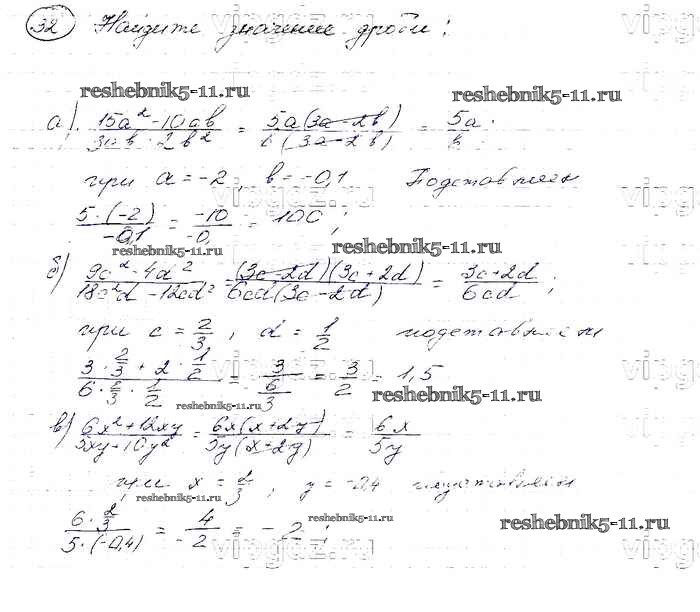 32 Найдите значение дроби:
reshebnik5-11.ru
reshebnik5-11.ru
а) (15a² - 10ab)/(3ab - 2b²) = 5a(3a - 2b)/b(3a - 2b) = 5a/b
при a = -2, b = -0,1 Подставляем
5·(-2)/-0,1 = -10/-0, = 100;
reshebnik5-11.ru
reshebnik5-11.ru
б) (9c² - 4d²)/(18c²d - 12cd²) = (3c - 2d)(3c + 2d)/6cd(3c - 2d) = (3c + 2d)/6cd;
при c = 2/3, d = 1/2 подставляем
(3·2/3 + 2·1/2)/(6·2/3·1/2) = 3/(6/3) = 3/2 = 1,5
reshebnik5-11.ru
reshebnik5-11.ru
в) (6x² + 12xy)/(5xy + 10y²) = 6x(x + 2y)/5y(x + 2y) = 6x/5y
при x = 2/3, y = -0,4 подставляем
reshebnik5-11.ru
(6·2/3)/(5·(-0,4)) = 4/-2 = -2;
reshebnik5-11.ru
reshebnik5-11.ru
vipgaz.ru